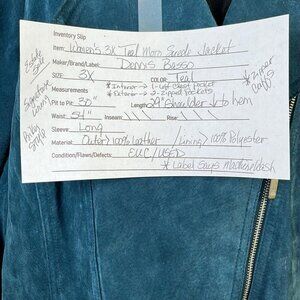 Inventory Slip
Item: Women's 3X Teal Moro Suede Jacket
Maker/Brand/Label: Dennis Basso
SIZE: 3X COLOR: Teal
Measurements * Interior → 1-Left Chest pocket
* Exterior → 2-Zipped Pockets
Pit to Pit: 30" Length: 29" Shoulder ↓ to hem
Waist: 54" Inseam: Rise:
Sleeve: Long
Material: Outer) 100% Leather / Lining) 100% Polyester
Condition/Flaws/Defects: EUC/USED
* Label Says Machine Wash
* Zipper Cuffs
Estate Sale
Signature Worn